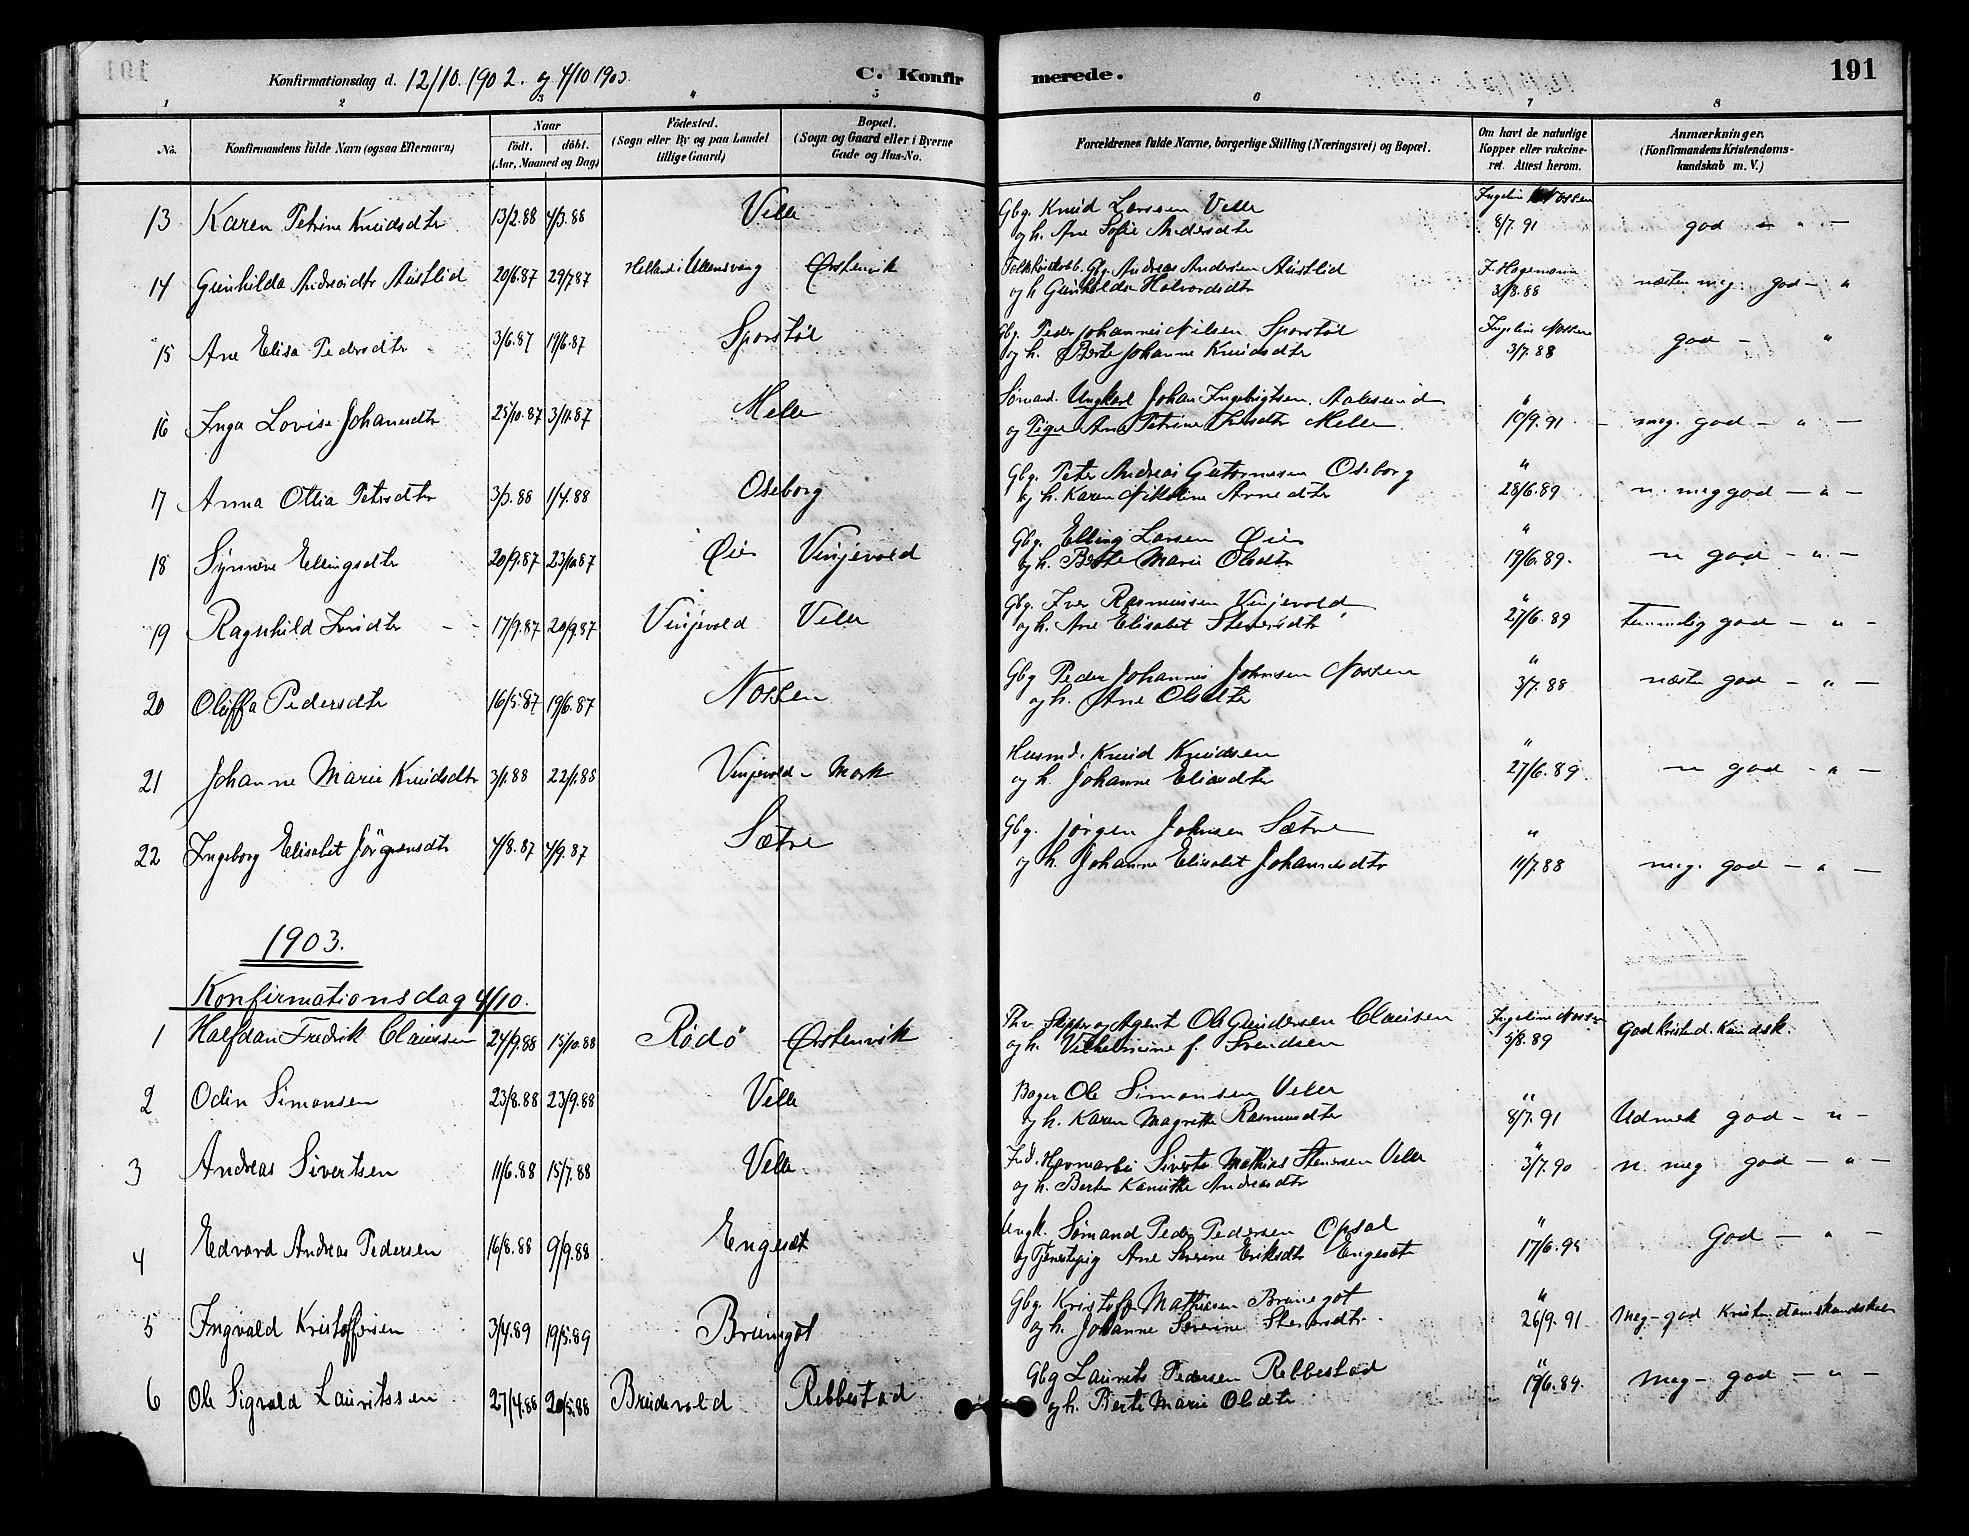 Konfirmationsdag d. 12/10. 1902. og 4/10 1903.
C. Konfirmerede.
191
1 2 3 4 5 6 7 8
No.
Konfirmandens fulde Navn (ogsaa Efternavn)
Naar
født. døbt.
(Aar, Maaned og Dag)
Fødested.
(Sogn eller By og paa Landet tillige Gaard)
Bopæl.
(Sogn og Gaard eller i Byerne Gade og Hus-No.
Forældrenes fulde Navne, borgerlige Stilling (Næringsvei) og Bopæl.
Om havt de naturlige Kopper eller vakcineret. Attest herom.
Anmærkninger.
(Konfirmandens Kristendomskundskab m. V.)
13 Karen Petrine Knudsdtr 13/2.88 4/3.88 Velle Gbg. Knud Larssen Velle Ingeline Nossen god " -
og h. Ane Sofie Andersdtr 8/7. 91
14 Gunhilda Andreasdtr Austlid 20/6.87 29/7 87 Helland i Ullensvang Ørstenvik Gbg. Andreas Andersen Austlid F. Hagemann næsten meg. god - "
og h. Gunhilda Halvordsdtr 3/8.88
15 Ane Elisa Pedersdtr 3/6.87 19/6.87 Sporstøl Gbg. Peder Johannes Nilsen Sporstøl Ingeline Nossen god - "
og h. Berte Johanne Knudsdtr 3/7.88
16 Inga Lovise Johansdtr 25/10.87 3/11.87 Melle Sømand. Ungkarl Johan Ingebrigtsen, Aalesund " meg. god - " -
og Pige Ane Petrine Melle 10/9.91
17 Anna Otlia Petersdtr 3/3.88 1/4.88 Oseborg Gbg. Peter Andreas Guttormsen Oseborg " n. meg god - " -
og h. Karen Nikoline Arnedtr 28/6.89
18 Synnøve Ellingsdtr 20/9.87 23/10.87 Øie Vinjevold Gbg. Elling Larsen Øie " n god - " -
og h. Berte Marie Olsdtr 19/6.89.
19 Ragnhild Iversdtr 17/9.87 20/9.87 Vinjevold Velle Gbg. Iver Rasmussen Vinjevold " Temmelig god - " -
og h. Ane Elisabet Stenersdtr 27/6.89
20 Oluffa Pedersdtr 16/5.87 19/6.87 Nossen Gbg Peder Johannes Johnsen Nossen " næsten god - " -
og h. Ane Olsdtr 3/7.88
21 Johanne Marie Knudsdtr 3/1.88 22/1.88 Vinjevold - Mork Husmd. Knud Knudsen " n god - " -
og h. Johanne Eliasdtr 27/6.89
22 Ingeborg Elisabet Jørgensdtr 4/8.87 4/9.87 Sætre Gbg. Jørgen Johnsen Sætre " meg. god - " -
og h. Johanne Elisabet Johannesdtr 11/7.88
1903.
Konfirmationsdag 4/10.
1 Halfdan Fredrik Claussen 24/9.88 15/10.88 Rødø Ørstenvik Skipper og Agent Ole Gundersen Clausen Ingeline Nossen god kristd. kundsk.
og h. Vilhelmine f. Svendsen 3/8.89
2 Odin Simonsen 23/8.88 23/9.88 Velle Bager Ole Simonsen Velle " Udmerk god - " -
og h. Karen Magrethe Rasmusdtr 8/7.91
3 Andreas Sivertsen 11/6.88 15/7.88 Velle Ind. Sivert Mathias Stenersen Velle " n. meg god - " -
og h. Berte Kanutte Andreasdtr 3/7.90
4 Edvard Andreas Pedersen 16/8.88 9/9.88 Engeset Ungk. Sømand Peder Pedersen Opsal " God - " -
og Tjenestepig Ane Severine Eriksdtr Engeset
5 Ingvald Kristoffersen 3/4.89 19/5.89 Brungot Gbg Kristoffer Mathiasen Brungot " Meg - god Kristendomskundskab
og h. Johanne Severine Stenersdtr. 26/9.91
6 Ole Sigvald Lauritssen 27/4.88 20/5.88 Brudevold Rebbestad Gbg Laurits Pedersen Rebbestad " Meg - god - " -
og h. Berte Marie Olsdtr 19/6.89.